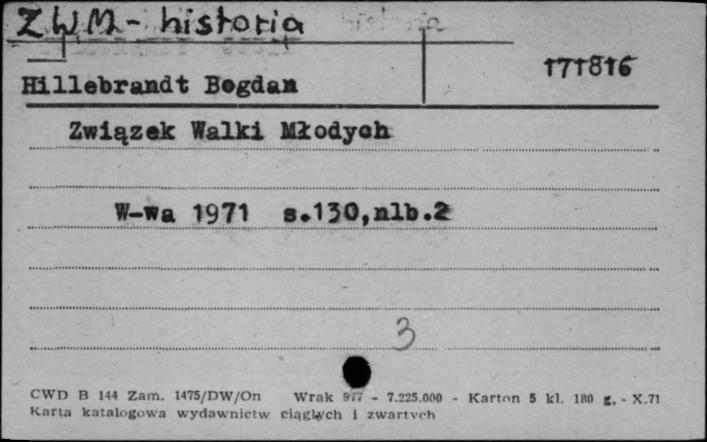 ZWM - historia
171816
Hillebrandt Bogdan
Związek Walki Młodych
W-wa 1971 s.130,nlb.2
3
CWD B 144 Zam. 1475/DW/On Wrak 977 - 7.225.000 - Karton 5 kl. 180 g. - X.71
Karta katalogowa wydawnictw ciągłych i zwartych